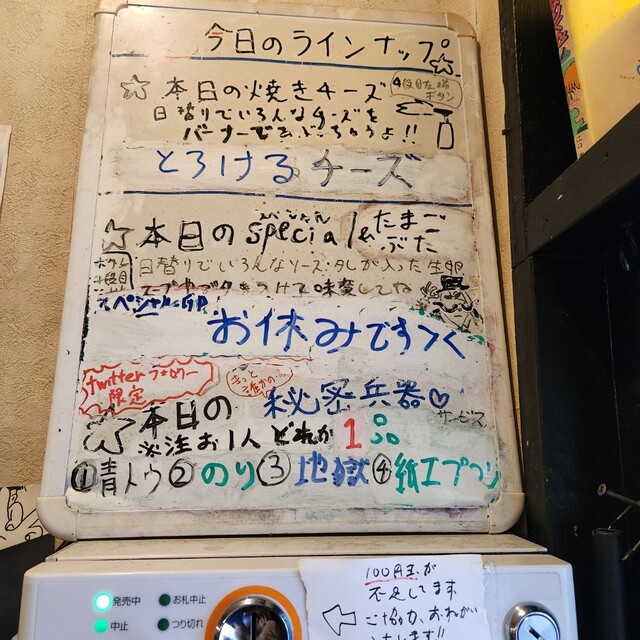 今日のラインナップ
☆本日の焼きチーズ
4段目左端
ボタン
日替りでいろんなチーズを
バーナーであぶっちゃうよ!!
とろけるチーズ
☆本日のspecial
たまご
ぶた
日替りでいろんなソース・タレが入った生卵
味変してね
スペシャル
お休みですっく
twitterフォロワー
限定
きっと
誰かの…
本日の 秘密兵器♡
サービス
※注 お1人どれか1品
①青トウ②のり③地獄④紙エプロン
100円玉が
不足してます
ご協力、おねがい
いたします!!
発売中
お札中止
中止
つり切れ